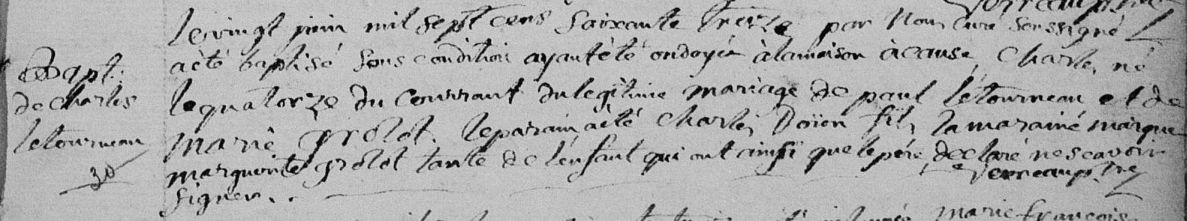 le vingt juin mil sept cens soixante treize par Nous curé soussigné
a été baptisé sous condition ayant été ondoyé à la maison à cause, Charle, né
Bapt.
de Charles
letourneau
30
le quatorze du courrant du legitime mariage de paul létourneau et de
marie grolot. le parain a été Charle, Doïen fils, la maraine marque
marguerite grolot tante de l'enfant qui ont ainsi que le pére declaré ne scavoir
signer. . Perreau ptre
marie françois